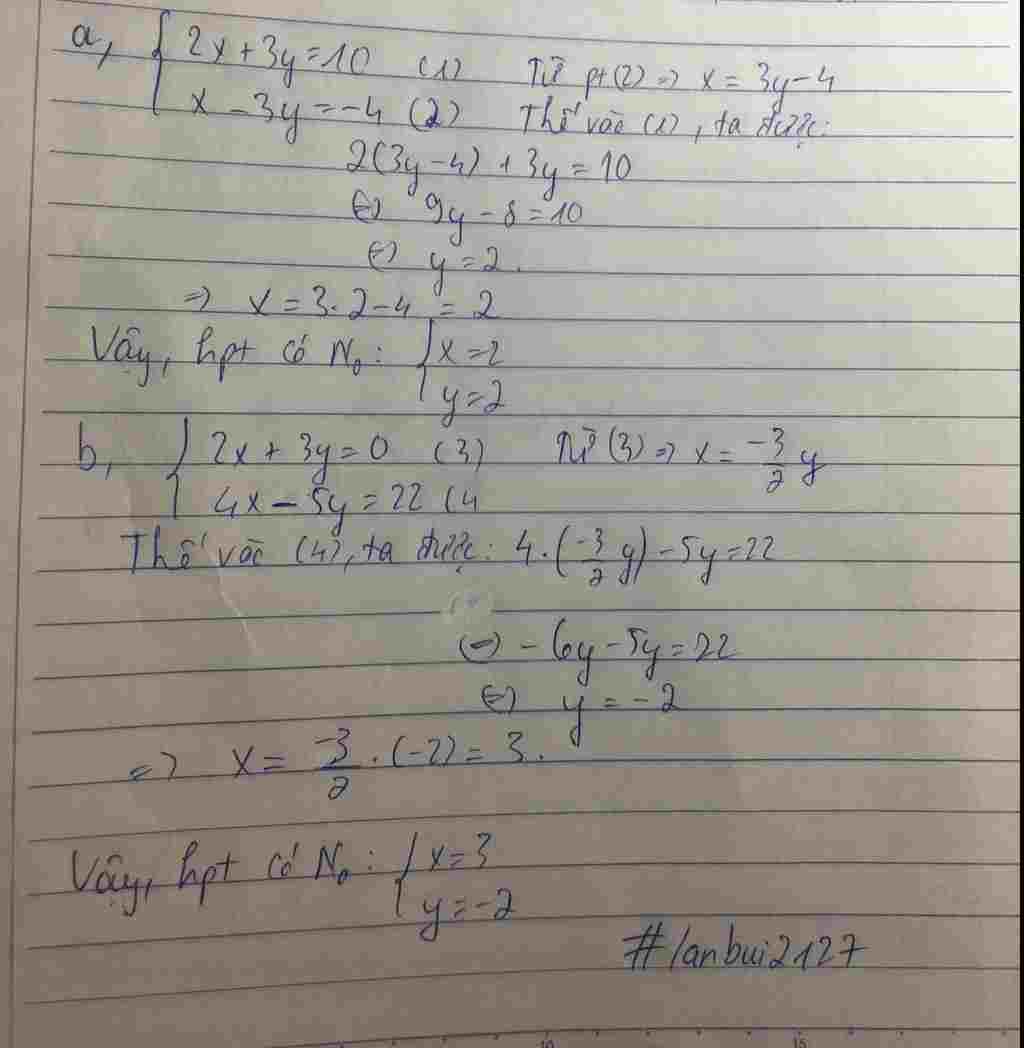 a, { 2x + 3y = 10 (1) Từ pt(2) => x = 3y - 4
x - 3y = -4 (2) Thế vào (1), ta được:
2(3y - 4) + 3y = 10
<=> 9y - 8 = 10
<=> y = 2.
=> x = 3.2 - 4 = 2
Vậy, hpt có No: { x = 2
y = 2
b, { 2x + 3y = 0 (3) Từ (3) => x = -3/2 y
4x - 5y = 22 (4
Thế vào (4), ta được: 4.(-3/2 y) - 5y = 22
<=> -6y - 5y = 22
<=> y = -2
=> x = -3/2 . (-2) = 3.
Vậy, hpt có No: { x = 3
y = -2
#lanbui2127
10 15